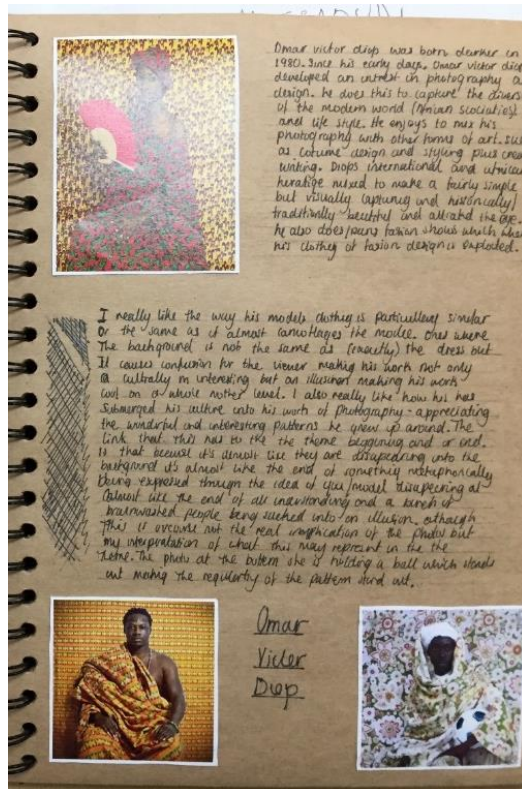 Omar victor diop was born darker in
1980. Since his early days. Omar victor diop
developed an intrest in photography a
design. he does this to capture the divers
of the modern world (African scocieties)
and life style. He enjoys to mix his
photography with other forms of art. Suc
as cotume design and styling plus crea
writing. Diops international and
heratige mixed to make a fairly simple
but visually and historically/
traditinally beutful and attrakd the eye.
he also does/runs fasion shows which
his clothes of fasion design is exploded.
I really like the way his models clothing is particullerly similar
or the same as it almost camoflages the model. Ones where
The background is not the same as (exactly) the dress but
It causes confusion for the viewer making his work not only
culturally interesting but an illusion making his work
cool on a whole nother level. I also really like how his has
submerged his culture into his work of photography - appreciating
the wonderful and interesting patterns he grew up around. The
link that this has to the the theme beggining and or end.
Is that becuse it's almost like they are disapearing into the
background it's almost like the end of something metaphorically
being expressed through the idea of you/model disapearing
almost like the end of all understanding and a bunch of
brainwashed people being sucked into an illusion. although
This is ofcourse not the real of the photos but
my interpretation of what this may represent in the the
theme. The photo at the bottem she is holding a ball which stands
out making the regularty of the pattern stand out.
Omar
Victer
Diop